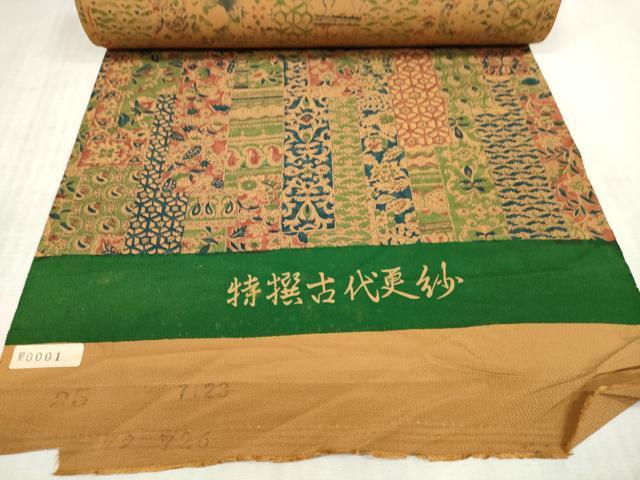 特撰古代更紗
0001
7.23
726